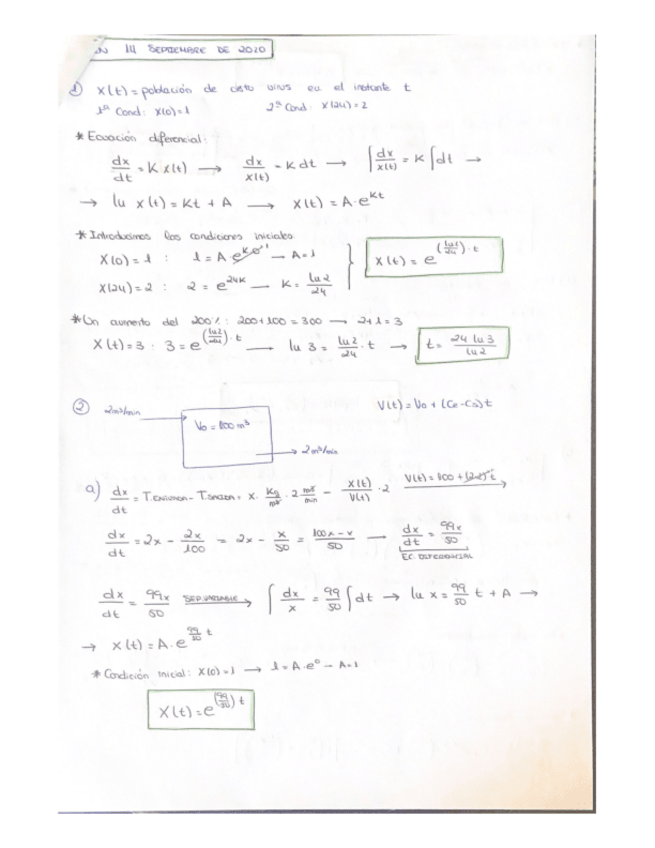 N 14 SEPTIEMBRE DE 2020
1) X(t) = población de cierto virus en el instante t
1ª Cond: X(0)=1 2ª Cond: X(24)=2
* Ecuación diferencial:
dx/dt = K X(t) → dx/X(t) = K dt → ∫ dx/X(t) = K ∫dt →
→ ln X(t) = Kt + A → X(t) = A·e^(Kt)
* Introducimos las condiciones iniciales
X(0)=1 : 1 = A·e^(K·0) → A=1
X(24)=2 : 2 = e^(24K) → K = ln2/24
X(t) = e^((ln2/24)·t)
* Un aumento del 200% : 200+100=300 → 2+1=3
X(t)=3 : 3=e^((ln2/24)·t) → ln 3 = ln2/24 · t → t = 24 ln3/ln2
2) 2m³/min V(t) = Vo + (Ce-Cs)t
Vo = 100 m³
2m³/min
a) dx/dt = T.ENTRADA - T.SALIDA = X · Kg/m³ · 2 m³/min - X(t)/V(t) · 2 V(t) = 100 + (2-2)t →
dx/dt = 2x - 2x/100 = 2x - x/50 = 100x-x/50 → dx/dt = 99x/50
EC. DIFERENCIAL
dx/dt = 99x/50 SEP.VARIABLE → ∫ dx/x = 99/50 ∫dt → ln x = 99/50 t + A →
→ X(t) = A·e^(99/50 t)
* Condición inicial: X(0)=1 → 1 = A·e^0 → A=1
X(t) = e^((99/50) t)